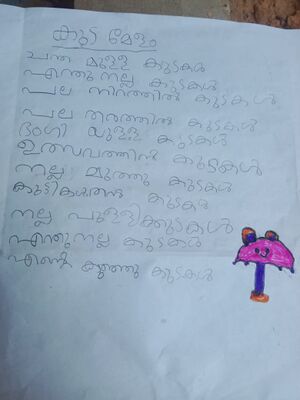 കുട മേളം
ചന്ത മുള്ള കുടകൾ
എന്തു നല്ല കുടകൾ
പല നിറത്തിൽ കുടകൾ
പല തരത്തിൽ കുടകൾ
ഭംഗി യുള്ള കുടകൾ
ഉത്സവത്തിൻ കുടകൾ
നല്ല മുത്തു കുടകൾ
കുടകൾ
നല്ല പുള്ളിക്കുടകൾ
എന്തു നല്ല കുടകൾ
എന്റെ കുഞ്ഞു കുടകൾ